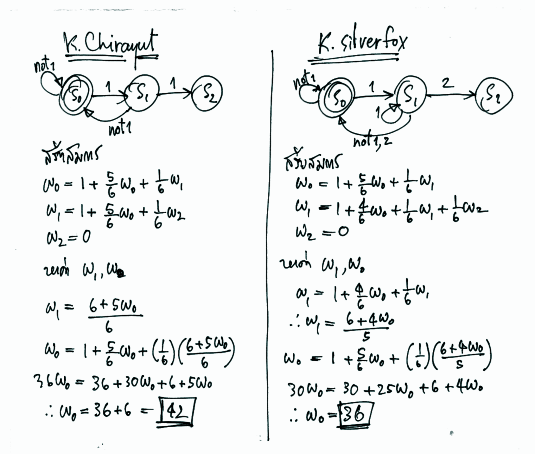 K. Chirayut
not 1
S₀ 1 S₁ 1 S₂
not 1
สร้างสมการ
ω₀ = 1 + 5/6 ω₀ + 1/6 ω₁
ω₁ = 1 + 5/6 ω₀ + 1/6 ω₂
ω₂ = 0
ω₁, ω₀
ω₁ = (6 + 5ω₀)/6
ω₀ = 1 + 5/6 ω₀ + (1/6)((6 + 5ω₀)/6)
36ω₀ = 36 + 30ω₀ + 6 + 5ω₀
∴ ω₀ = 36 + 6 = 42
K. Silverfox
not 1
S₀ 1 S₁ 2 S₂
1
not 1,2
สร้างสมการ
ω₀ = 1 + 5/6 ω₀ + 1/6 ω₁
ω₁ = 1 + 4/6 ω₀ + 1/6 ω₁ + 1/6 ω₂
ω₂ = 0
ω₁, ω₀
ω₁ = 1 + 4/6 ω₀ + 1/6 ω₁
∴ ω₁ = (6 + 4ω₀)/5
ω₀ = 1 + 5/6 ω₀ + (1/6)((6 + 4ω₀)/5)
30ω₀ = 30 + 25ω₀ + 6 + 4ω₀
∴ ω₀ = 36